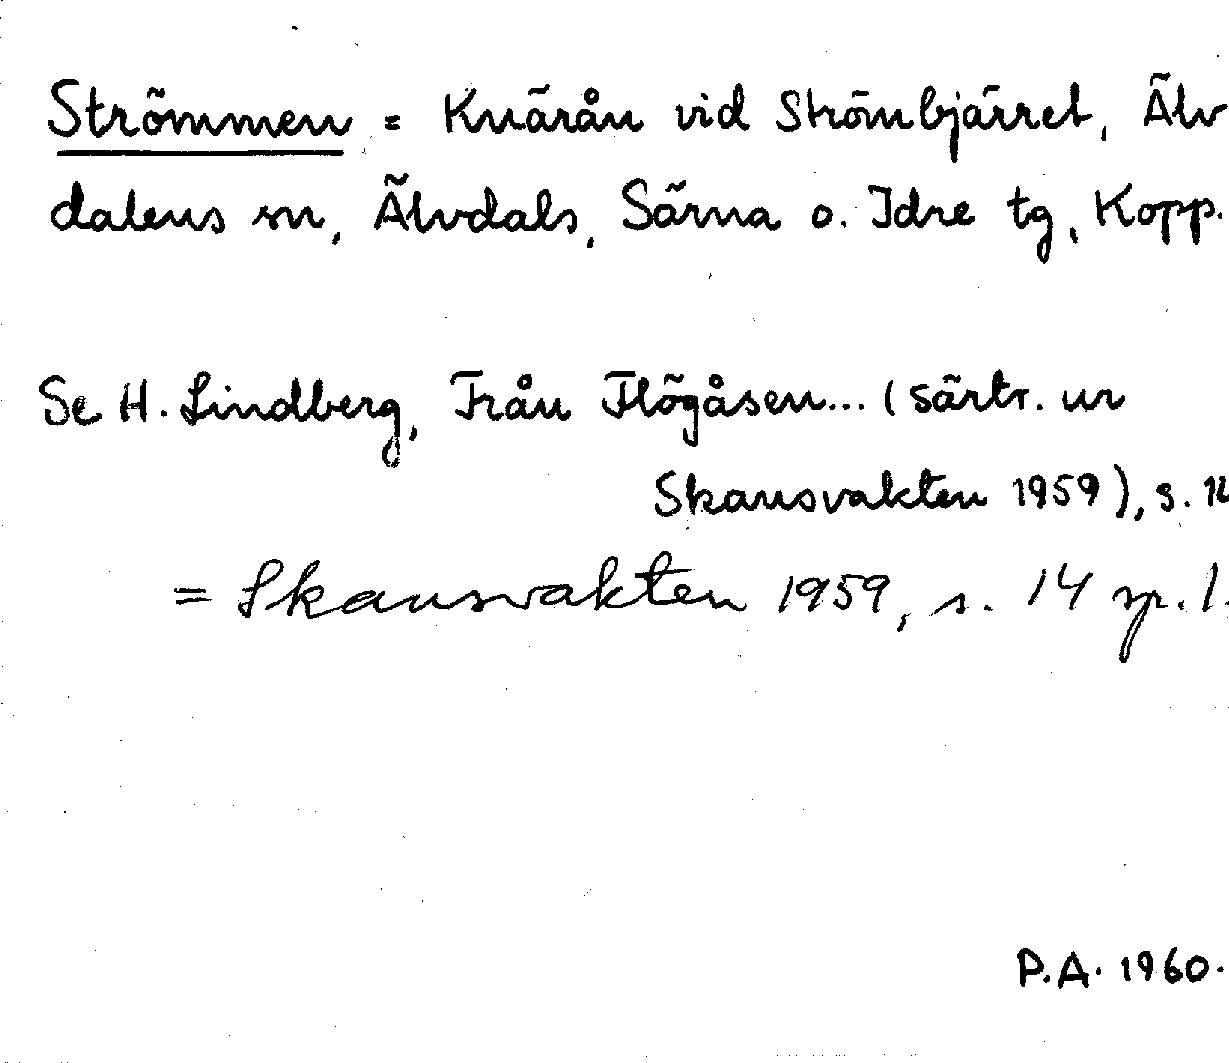 Strömmen = Knärån vid Strömbjärret, Älv
dalens sn, Älvdals, Särna o. Idre tg, Kopp.
Se H. Lindberg, Från Flögåsen... (särtr. ur
Skansvakten 1959), s.
= Skansvakten 1959, s. 14 sp. 1.
P.A. 1960.